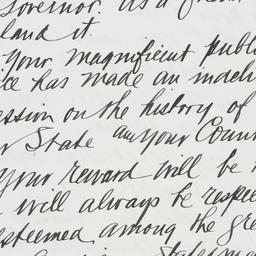 Governor. As a
land it.
Your magnificent publ
ce has made an indel
ession on the history of
r State and your Coun
Your reward will be
will always be respe
esteemed among the gre